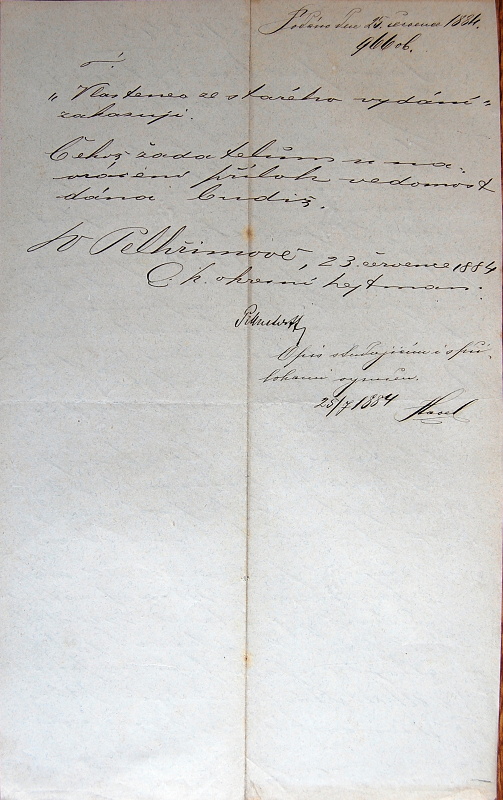 Podáno dne 25. července 1884.
966 ob.
„Vlastenec ze starého vydání"
zakazuji.
Čehož žadatelům u na-
vrácení příloh vědomost
dána budiž.
V Pelhřimově, 23. července 1884
C. k. okresní hejtman:
Opis stěžujícím i s pří-
lohami
25/7 1884 Havel